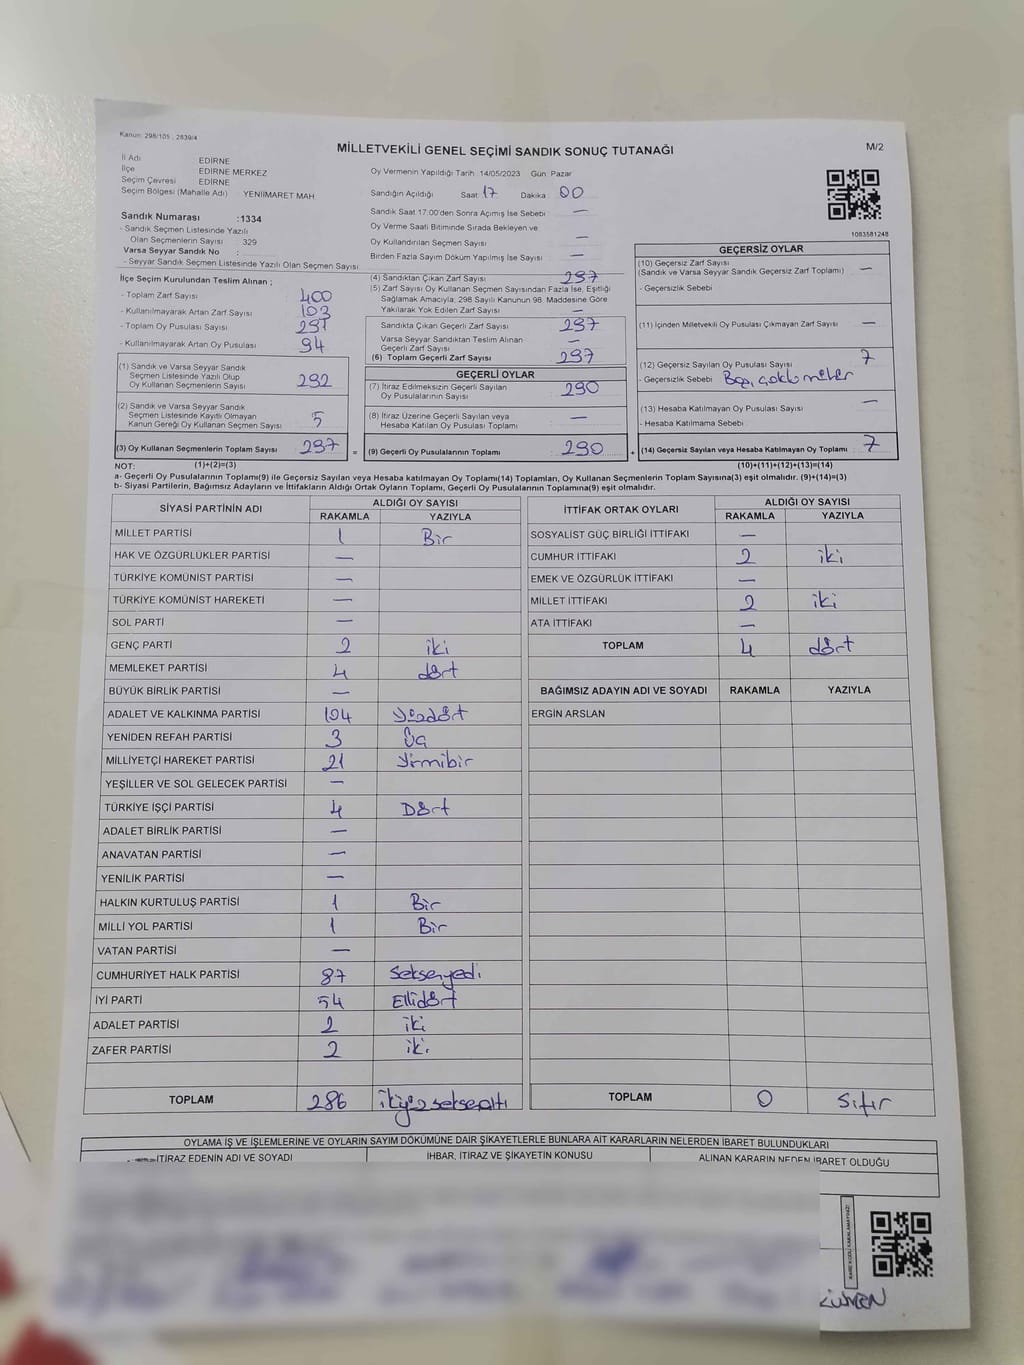 Kanun: 298/105 ; 2839/4
MİLLETVEKİLİ GENEL SEÇİMİ SANDIK SONUÇ TUTANAĞI
M/2
İl Adı EDİRNE
İlçe EDİRNE MERKEZ
Seçim Çevresi EDİRNE
Seçim Bölgesi (Mahalle Adı) YENİİMARET MAH
Sandık Numarası :1334
- Sandık Seçmen Listesinde Yazılı
Olan Seçmenlerin Sayısı : 329
Varsa Seyyar Sandık No :
- Seyyar Sandık Seçmen Listesinde Yazılı Olan Seçmen Sayısı
Oy Vermenin Yapıldığı Tarih 14/05/2023 Gün Pazar
Sandığın Açıldığı Saat 17 Dakika 00
Sandık Saat 17:00'den Sonra Açılmış İse Sebebi —
Oy Verme Saati Bitiminde Sırada Bekleyen ve
Oy Kullandırılan Seçmen Sayısı —
Birden Fazla Sayım Döküm Yapılmış İse Sayısı —
1083581248
İlçe Seçim Kurulundan Teslim Alınan ;
- Toplam Zarf Sayısı 400
- Kullanılmayarak Artan Zarf Sayısı 103
- Toplam Oy Pusulası Sayısı
- Kullanılmayarak Artan Oy Pusulası 94
(1) Sandık ve Varsa Seyyar Sandık
Seçmen Listesinde Yazılı Olup
Oy Kullanan Seçmenlerin Sayısı 292
(2) Sandık ve Varsa Seyyar Sandık
Seçmen Listesinde Kayıtlı Olmayan
Kanun Gereği Oy Kullanan Seçmen Sayısı 5
(3) Oy Kullanan Seçmenlerin Toplam Sayısı 297 =
(4) Sandıktan Çıkan Zarf Sayısı 297
(5) Zarf Sayısı Oy Kullanan Seçmen Sayısından Fazla İse, Eşitliği
Sağlamak Amacıyla, 298 Sayılı Kanunun 98. Maddesine Göre
Yakılarak Yok Edilen Zarf Sayısı —
Sandıkta Çıkan Geçerli Zarf Sayısı 297
Varsa Seyyar Sandıktan Teslim Alınan
Geçerli Zarf Sayısı —
(6) Toplam Geçerli Zarf Sayısı 297
GEÇERLİ OYLAR
(7) İtiraz Edilmeksizin Geçerli Sayılan
Oy Pusulalarının Sayısı 290
(8) İtiraz Üzerine Geçerli Sayılan veya
Hesaba Katılan Oy Pusulası Toplamı —
(9) Geçerli Oy Pusulalarının Toplamı 290 +
GEÇERSİZ OYLAR
(10) Geçersiz Zarf Sayısı
(Sandık ve Varsa Seyyar Sandık Geçersiz Zarf Toplamı) —
- Geçersizlik Sebebi
(11) İçinden Milletvekili Oy Pusulası Çıkmayan Zarf Sayısı —
(12) Geçersiz Sayılan Oy Pusulası Sayısı 7
- Geçersizlik Sebebi Boş, çoklu mühür
(13) Hesaba Katılmayan Oy Pusulası Sayısı —
- Hesaba Katılmama Sebebi
(14) Geçersiz Sayılan veya Hesaba Katılmayan Oy Toplamı 7
NOT: (1)+(2)=(3) (10)+(11)+(12)+(13)=(14)
a- Geçerli Oy Pusulalarının Toplamı(9) ile Geçersiz Sayılan veya Hesaba katılmayan Oy Toplamı(14) Toplamları, Oy Kullanan Seçmenlerin Toplam Sayısına(3) eşit olmalıdır. (9)+(14)=(3)
b- Siyasi Partilerin, Bağımsız Adayların ve İttifakların Aldığı Ortak Oyların Toplamı, Geçerli Oy Pusulalarının Toplamına(9) eşit olmalıdır.
SİYASİ PARTİNİN ADI ALDIĞI OY SAYISI
RAKAMLA YAZIYLA
MİLLET PARTİSİ 1 Bir
HAK VE ÖZGÜRLÜKLER PARTİSİ —
TÜRKİYE KOMÜNİST PARTİSİ —
TÜRKİYE KOMÜNİST HAREKETİ —
SOL PARTİ —
GENÇ PARTİ 2 iki
MEMLEKET PARTİSİ 4 dört
BÜYÜK BİRLİK PARTİSİ —
ADALET VE KALKINMA PARTİSİ 104 Yüzdört
YENİDEN REFAH PARTİSİ 3 Üç
MİLLİYETÇİ HAREKET PARTİSİ 21 Yirmibir
YEŞİLLER VE SOL GELECEK PARTİSİ —
TÜRKİYE İŞÇİ PARTİSİ 4 Dört
ADALET BİRLİK PARTİSİ —
ANAVATAN PARTİSİ —
YENİLİK PARTİSİ —
HALKIN KURTULUŞ PARTİSİ 1 Bir
MİLLİ YOL PARTİSİ 1 Bir
VATAN PARTİSİ —
CUMHURİYET HALK PARTİSİ 87 Seksenyedi
İYİ PARTİ 54 Ellidört
ADALET PARTİSİ 2 iki
ZAFER PARTİSİ 2 iki
TOPLAM 286 ikiyüzseksenaltı
İTTİFAK ORTAK OYLARI ALDIĞI OY SAYISI
RAKAMLA YAZIYLA
SOSYALİST GÜÇ BİRLİĞİ İTTİFAKI —
CUMHUR İTTİFAKI 2 iki
EMEK VE ÖZGÜRLÜK İTTİFAKI —
MİLLET İTTİFAKI 2 iki
ATA İTTİFAKI —
TOPLAM 4 dört
BAĞIMSIZ ADAYIN ADI VE SOYADI RAKAMLA YAZIYLA
ERGİN ARSLAN
TOPLAM 0 Sıfır
OYLAMA İŞ VE İŞLEMLERİNE VE OYLARIN SAYIM DÖKÜMÜNE DAİR ŞİKAYETLERLE BUNLARA AİT KARARLARIN NELERDEN İBARET BULUNDUKLARI
İTİRAZ EDENİN ADI VE SOYADI İHBAR, İTİRAZ VE ŞİKAYETİN KONUSU ALINAN KARARIN NEDEN İBARET OLDUĞU